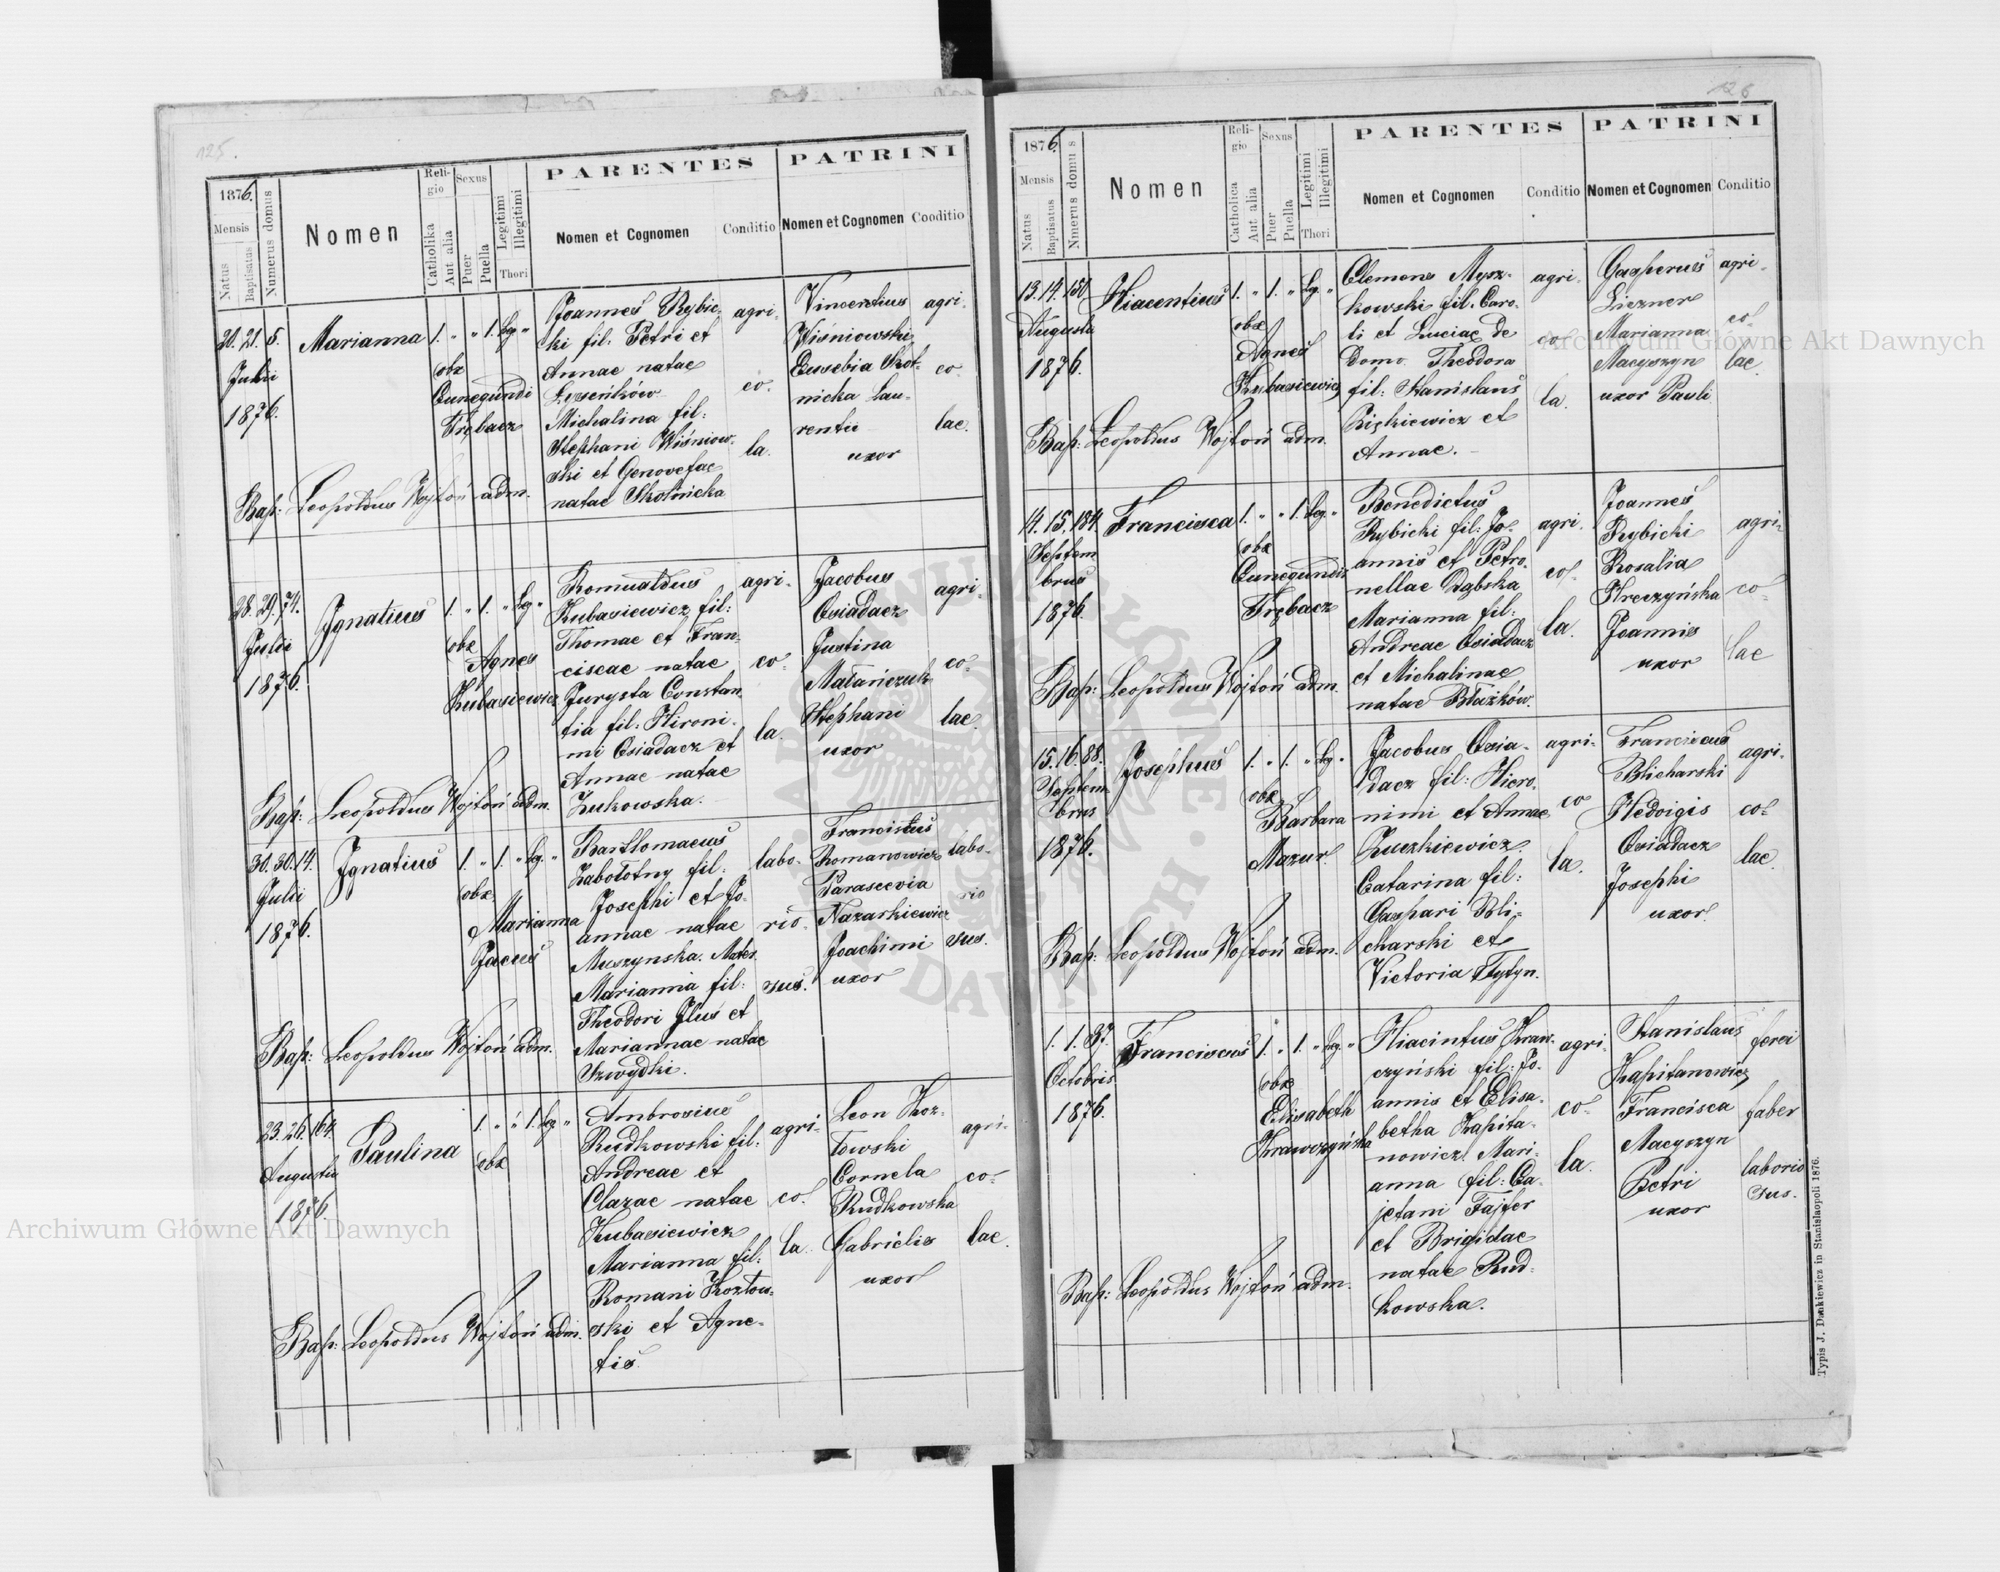 125.
1876.
Mensis
Natus
Baptisatus
Numerus domus
Nomen
Religio
Catholika
Aut alia
Sexus
Puer
Puella
Legitimi
Illegitimi
Thori
PARENTES
Nomen et Cognomen
Conditio
PATRINI
Nomen et Cognomen
Cooditio
20. 21. 5.
Julii
1876.
Marianna
1. " " 1. leg "
obx
Cunegundi
Trębacz
Joannes Rybic-
ki fil. Petri et
Annae natae
Michalina fil:
Stephani Wiśniow-
ski et Genovefae
natae Skolnicka
agri-
co-
la.
Vincentius
Wiśniowski
Eusebia Skol-
nicka Lau-
rentii
uxor
agri-
co-
lae.
Bap: Leopoldus Wojtoń adm.
28. 29. 74.
Julii
1876.
Ignatius
1. " 1. " leg "
obx
Agnes
Kubasiewicz
Romualdus
Kubasiewicz fil:
Thomae et Fran-
ciscae natae
Jurysta Constan
tia fil: Hironi-
mi Osiadacz et
Annae natae
Zukowska.
agri-
co-
la.
Jacobus
Osiadacz
Justina
Matańczuk
Stephani
uxor
agri-
co-
lae.
Bap: Leopoldus Wojtoń adm.
30. 30. 14.
Julii
1876.
Ignatius
1. " 1. " leg. "
obx
Marianna
Jacuś
Bartlomaeus
Zabołotny fil:
Josephi et Jo-
annae natae
Muszynska. Mater
Marianna fil:
Theodori Iluś et
Mariannae natae
Szwydki.
labo-
rio-
sus.
Franciscus
Romanowicz
Parascevia
Nazarkiewicz
Joachimi
uxor
labo-
rio
sus.
Bap: Leopoldus Wojtoń adm.
23. 26. 164.
Augusti
1876
Paulina
1. " " 1. leg "
obx
Ambrosius
Rudkowski fil:
Andreae et
Clarae natae
Kubasiewicz
Marianna fil:
Romani Kozłow-
ski et Agne-
tis.
agri-
co-
la.
Leon Koz-
łowski
Cornela
Rudkowska
Gabrielis
uxor
agri-
co-
lae.
Bap: Leopoldus Wojtoń adm.
126
1876.
Mensis
Natus
Baptisatus
Nmerus domus
Nomen
Religio
Catholica
Aut alia
Sexus
Puer
Puella
Legitimi
Illegitimi
Thori
PARENTES
Nomen et Cognomen
Conditio
PATRINI
Nomen et Cognomen
Conditio
13. 14. 151
Augusti
1876.
Hiacentius
1. " 1. " leg. "
obx
Agnes
Kubasiewicz
Clemens Mysz-
kowski fil. Caro-
li et Luciae de
Domo. Theodora
fil: Stanislaus
Piękiewicz et
Annae.
agri-
co-
la.
Gasperus
Liezner
Marianna
Macyszyn
uxor Pauli
agri-
co-
lae.
Bap: Leopoldus Wojtoń adm.
14. 15. 184.
Septem
brus
1876.
Francisca
1. " " 1. leg. "
obx
Cunegundis
Trębacz
Benedictus
Rybicki fil: Jo-
annis et Petro-
nellae Dąbska
Marianna fil:
Andreae Osiadacz
et Michalinae
natae Błażków.
agri-
co-
la.
Joannes
Rybicki
Rosalia
Kreczyńska
Joannis
uxor
agri-
co-
lae
Bap: Leopoldus Wojtoń adm.
15. 16. 88.
Septem
brus
1876.
Josephus
1. " 1. " leg. "
obx
Barbara
Mazur
Jacobus Osia-
dacz fil: Hiero-
nimi et Annae
Zuczkiewicz.
Catarina fil:
Gaspari Bli-
charski et
Victoria Tytyn.
agri-
co
la.
Franciscus
Blicharski
Hedvigis
Osiadacz
Josephi
uxor.
agri-
co-
lae.
Bap: Leopoldus Wojtoń adm.
1. 1. 87.
Octobris
1876.
Franciscus
1. " 1. " leg. "
obx
Elisabeth
Krawczyńska
Hiacintus Kraw-
czyński fil: Jo-
annis et Elisa-
betha Kapita-
nowicz. Mari-
anna fil: Ca-
jetani Fajfer
et Brigidae
natae Rud-
kowska.
agri-
co-
la.
Stanislaus
Kapitanowicz
Francisca
Macyszyn
Petri
uxor
ferri
faber
laborio
sus.
Bap: Leopoldus Wojtoń adm.
Typis J. Dankiewicz in Stanislaopoli 1876.
Archiwum Główne Akt Dawnych
Archiwum Główne Akt Dawnych